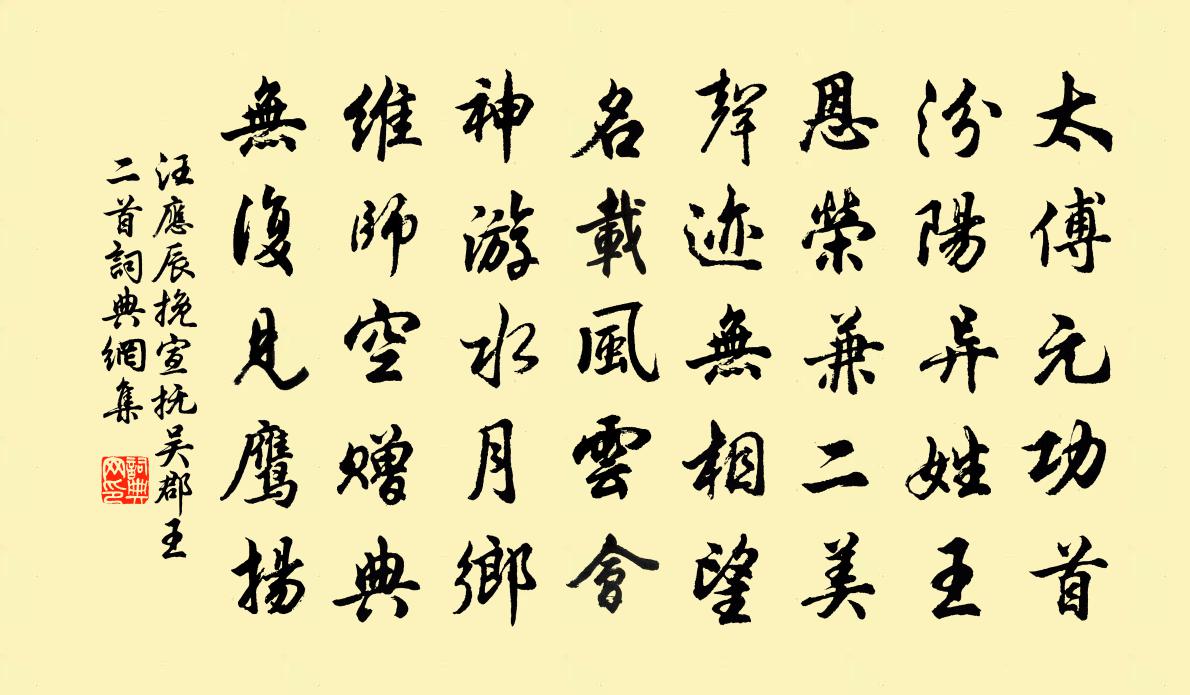 太傅元功首
汾陽异姓王
恩榮兼二美
聲迹無相望
名載風雲會
神游水月鄉
維師空贈典
無復見鷹揚
汪應辰挽宣抚吴郡王
二首詞典網集
詞典网印